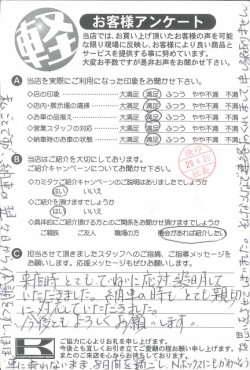 軽
お客様アンケート
当店では、お買い上げ頂いたお客様の声を可能
な限り現場に反映し、お客様により良い商品と
サービスを提供する事に努めています。
大変お手数ですが是非お声をお聞かせ下さい。
A 当店を実際にご利用になった印象をお聞かせ下さい。
◇店の印象 大満足 満足 ふつう やや不満 不満
◇店内・展示場の清掃 大満足 満足 ふつう やや不満 不満
◇お車の品揃え 大満足 満足 ふつう やや不満 不満
◇営業スタッフの対応 大満足 満足 ふつう やや不満 不満
◇納車時のお車の状態 大満足 満足 ふつう やや不満
B 当店はご紹介を大切にしております。
ご紹介キャンペーンについてお聞かせ下さい。
◇カミタケご紹介キャンペーンのご説明はありましたでしょうか
はい いいえ
◇ご紹介を頂けますでしょうか
はい いいえ
◇具体的にご紹介頂ける方とのご関係をお聞かせ頂けますでしょうか
ご親族 ご友人 職場の方 機会があれば紹介したい
C 担当させて頂きましたスタッフへのご指摘、ご指導メッセージを
お願いします。応援メッセージもぜひお願いします。
来店時とてもていねいに応対説明して
いただきました。納車の時も とても親切
に対応していただきました。
今後ともよろしくお願いします。
K
ご協力に心よりお礼を申し上げます。
今後とも宜しくお引き立てご愛顧の程お願い申し上げます。
またのご来店を心からお待ちしております。